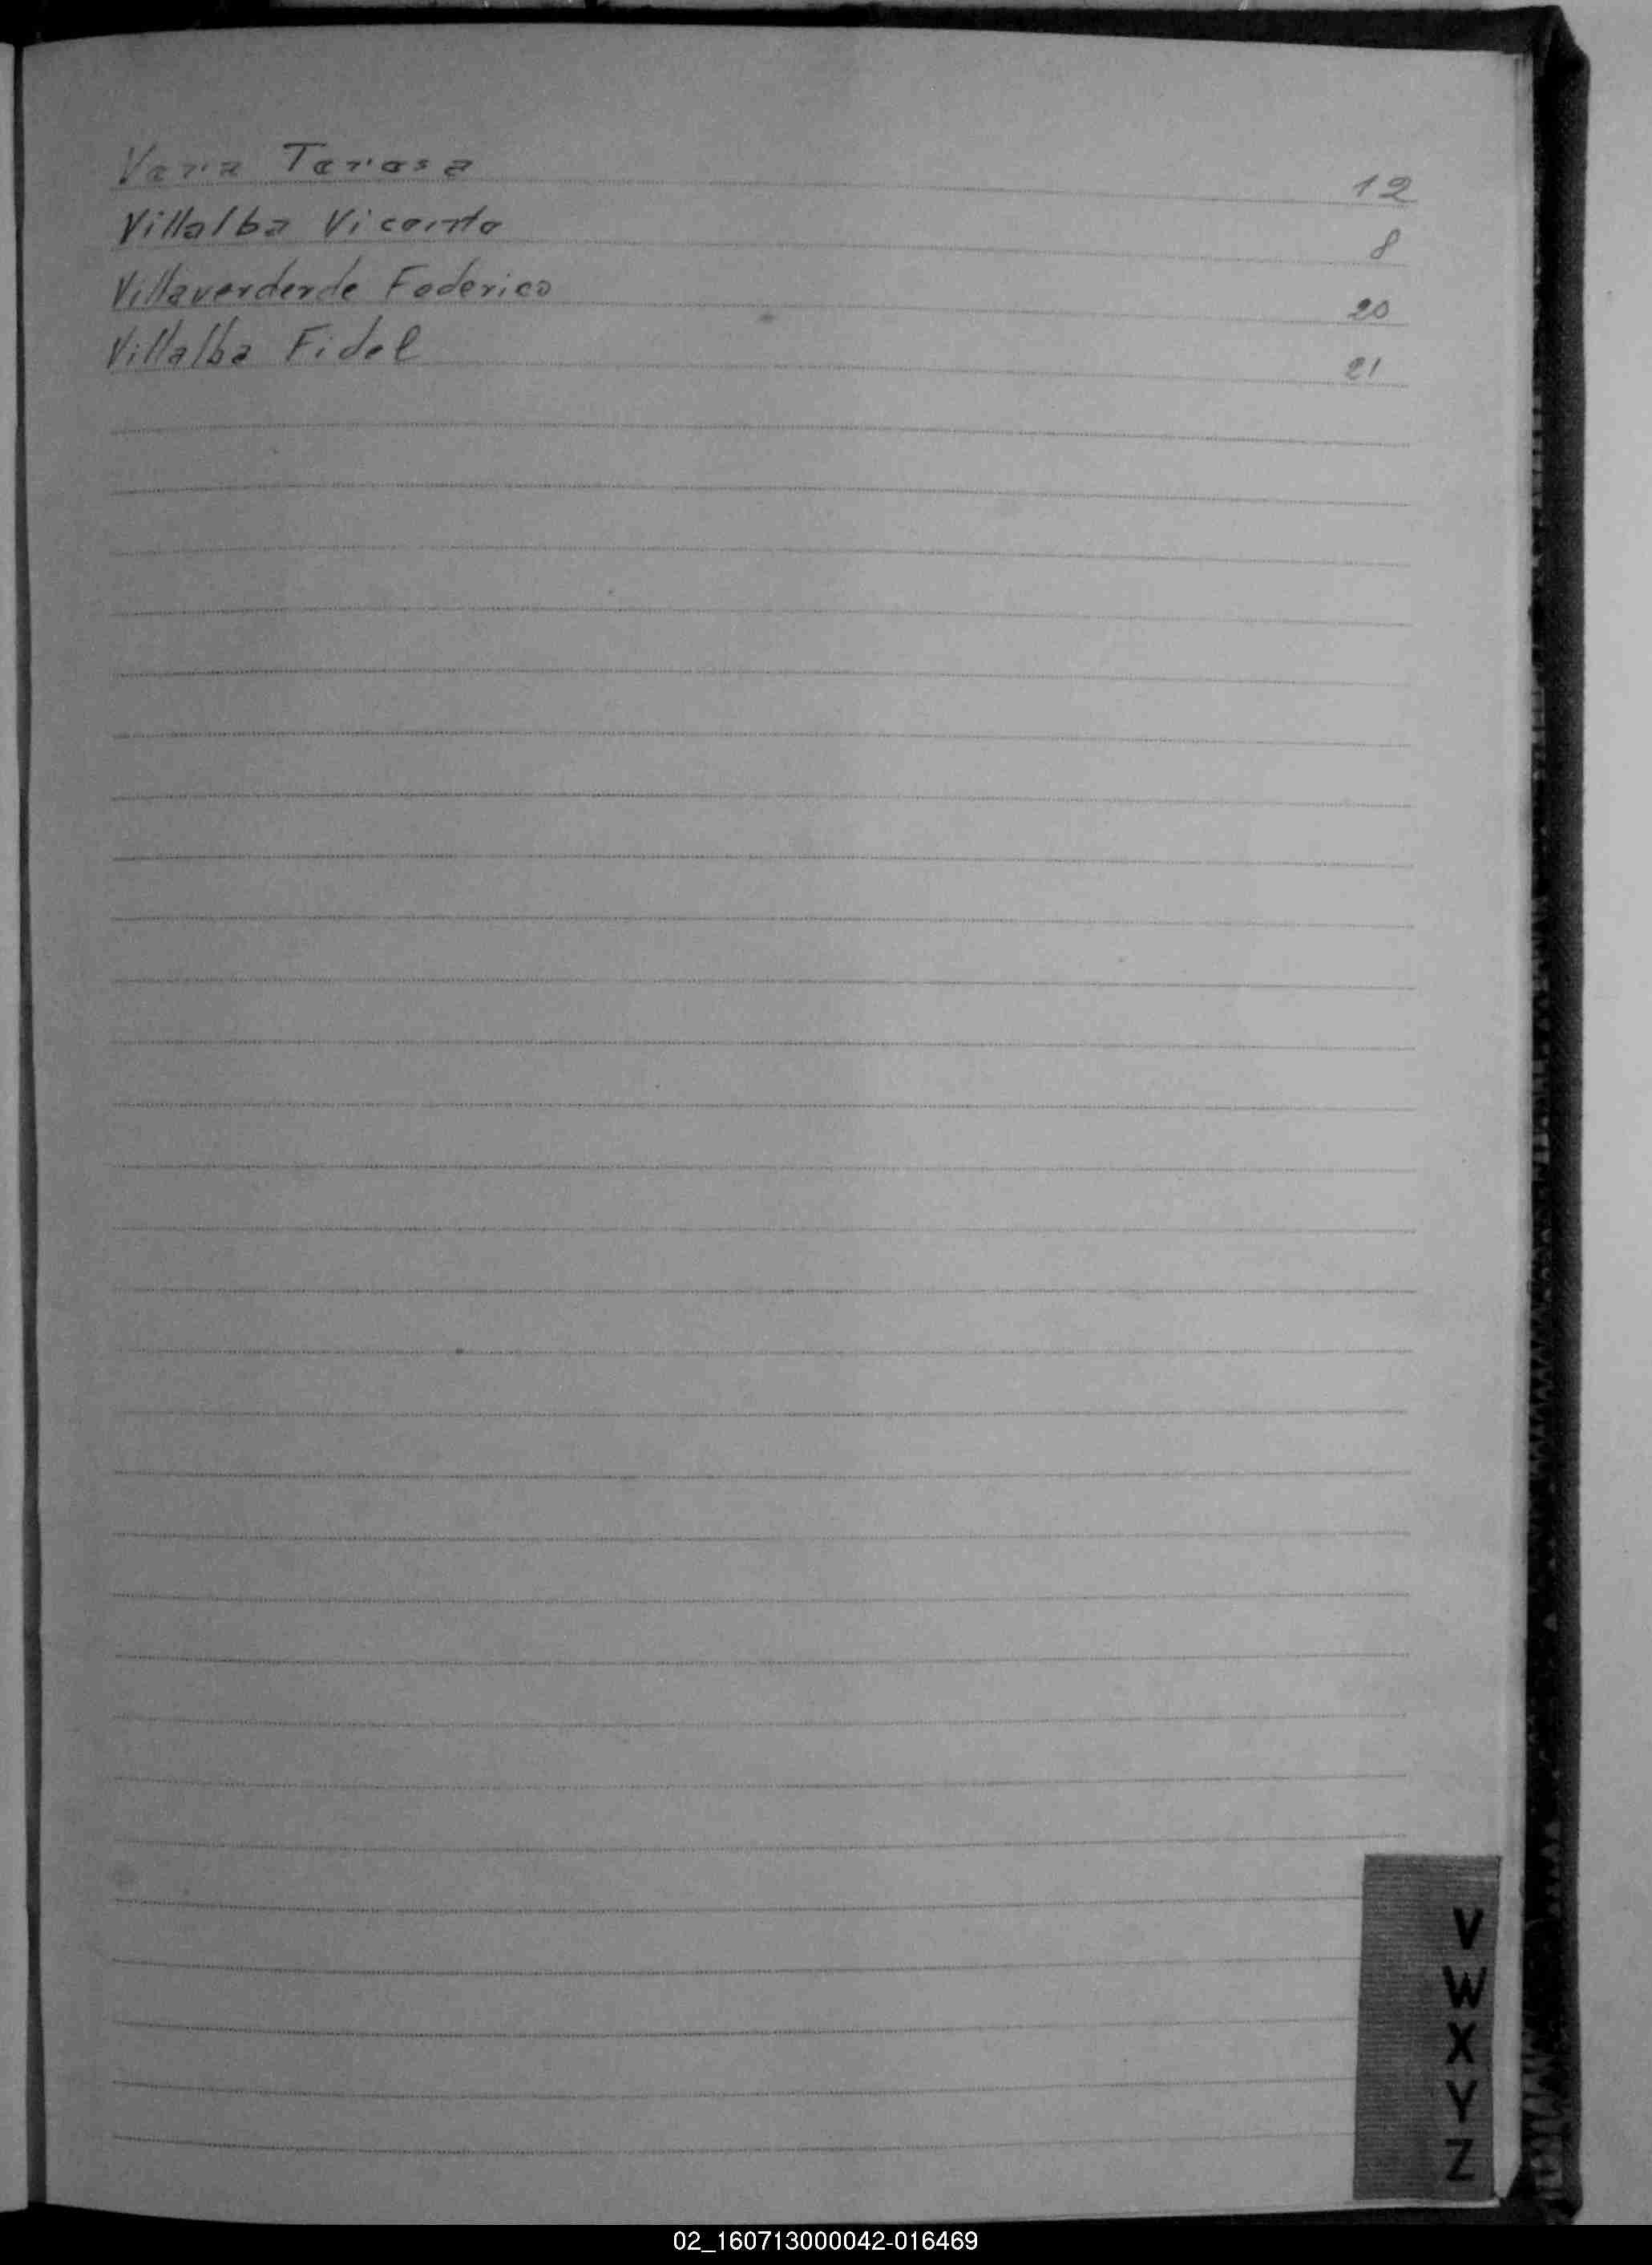 Vera Teresa 12
Villalba Vicente 8
Villaverderde Federico 20
Villalba Fidel 21
V
W
X
Y
Z
02_160713000042-016469